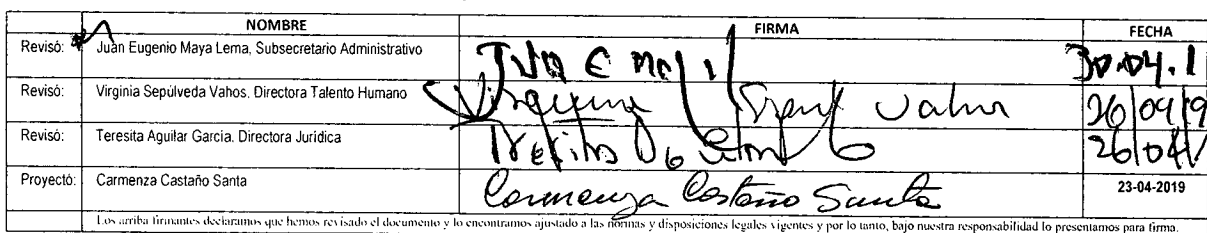 NOMBRE FIRMA FECHA
Revisó: Juan Eugenio Maya Lema, Subsecretario Administrativo 30.04.1
Revisó: Virginia Sepúlveda Vahos. Directora Talento Humano 26/04/19
Revisó: Teresita Aguilar García. Directora Jurídica 26/04/
Proyectó: Carmenza Castaño Santa Carmenza Castaño Santa 23-04-2019
Los arriba firmantes declaramos que hemos revisado el documento y lo encontramos ajustado a las normas y disposiciones legales vigentes y por lo tanto, bajo nuestra responsabilidad lo presentamos para firma.